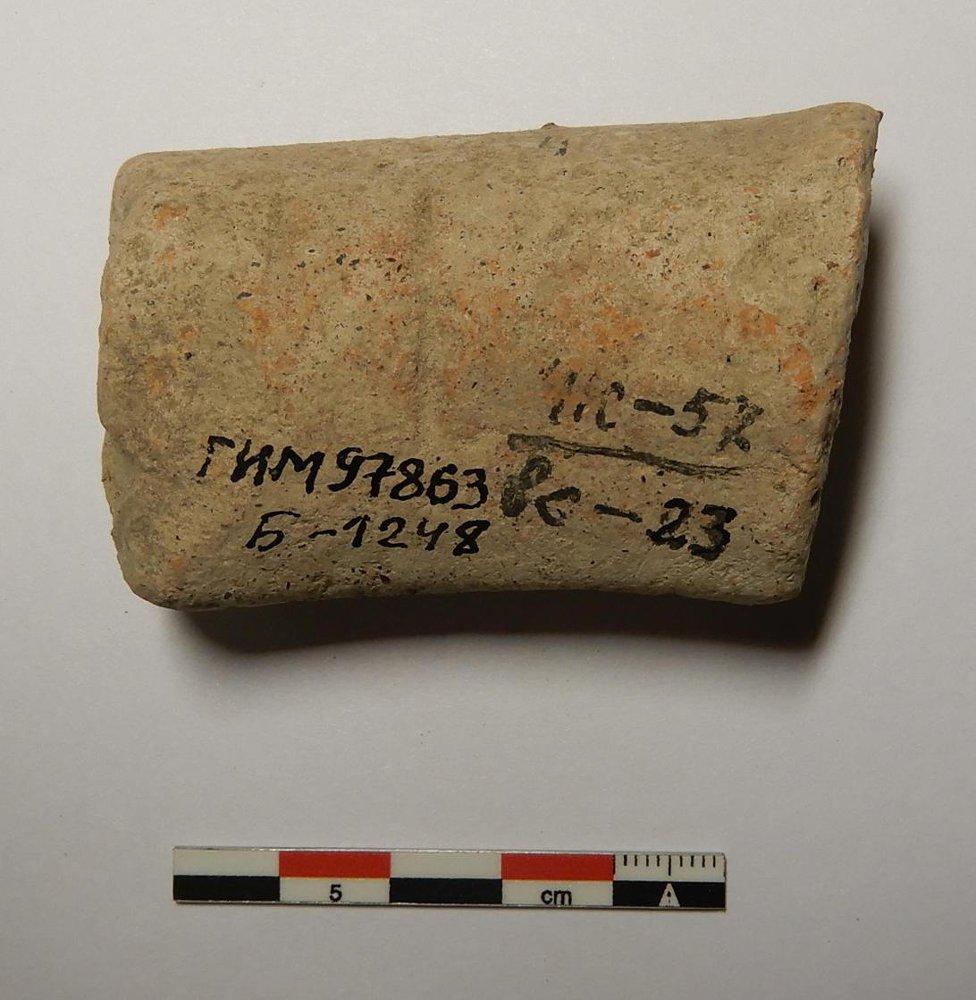 ГИМ97863
Б-1248
Вс-23
5 cm